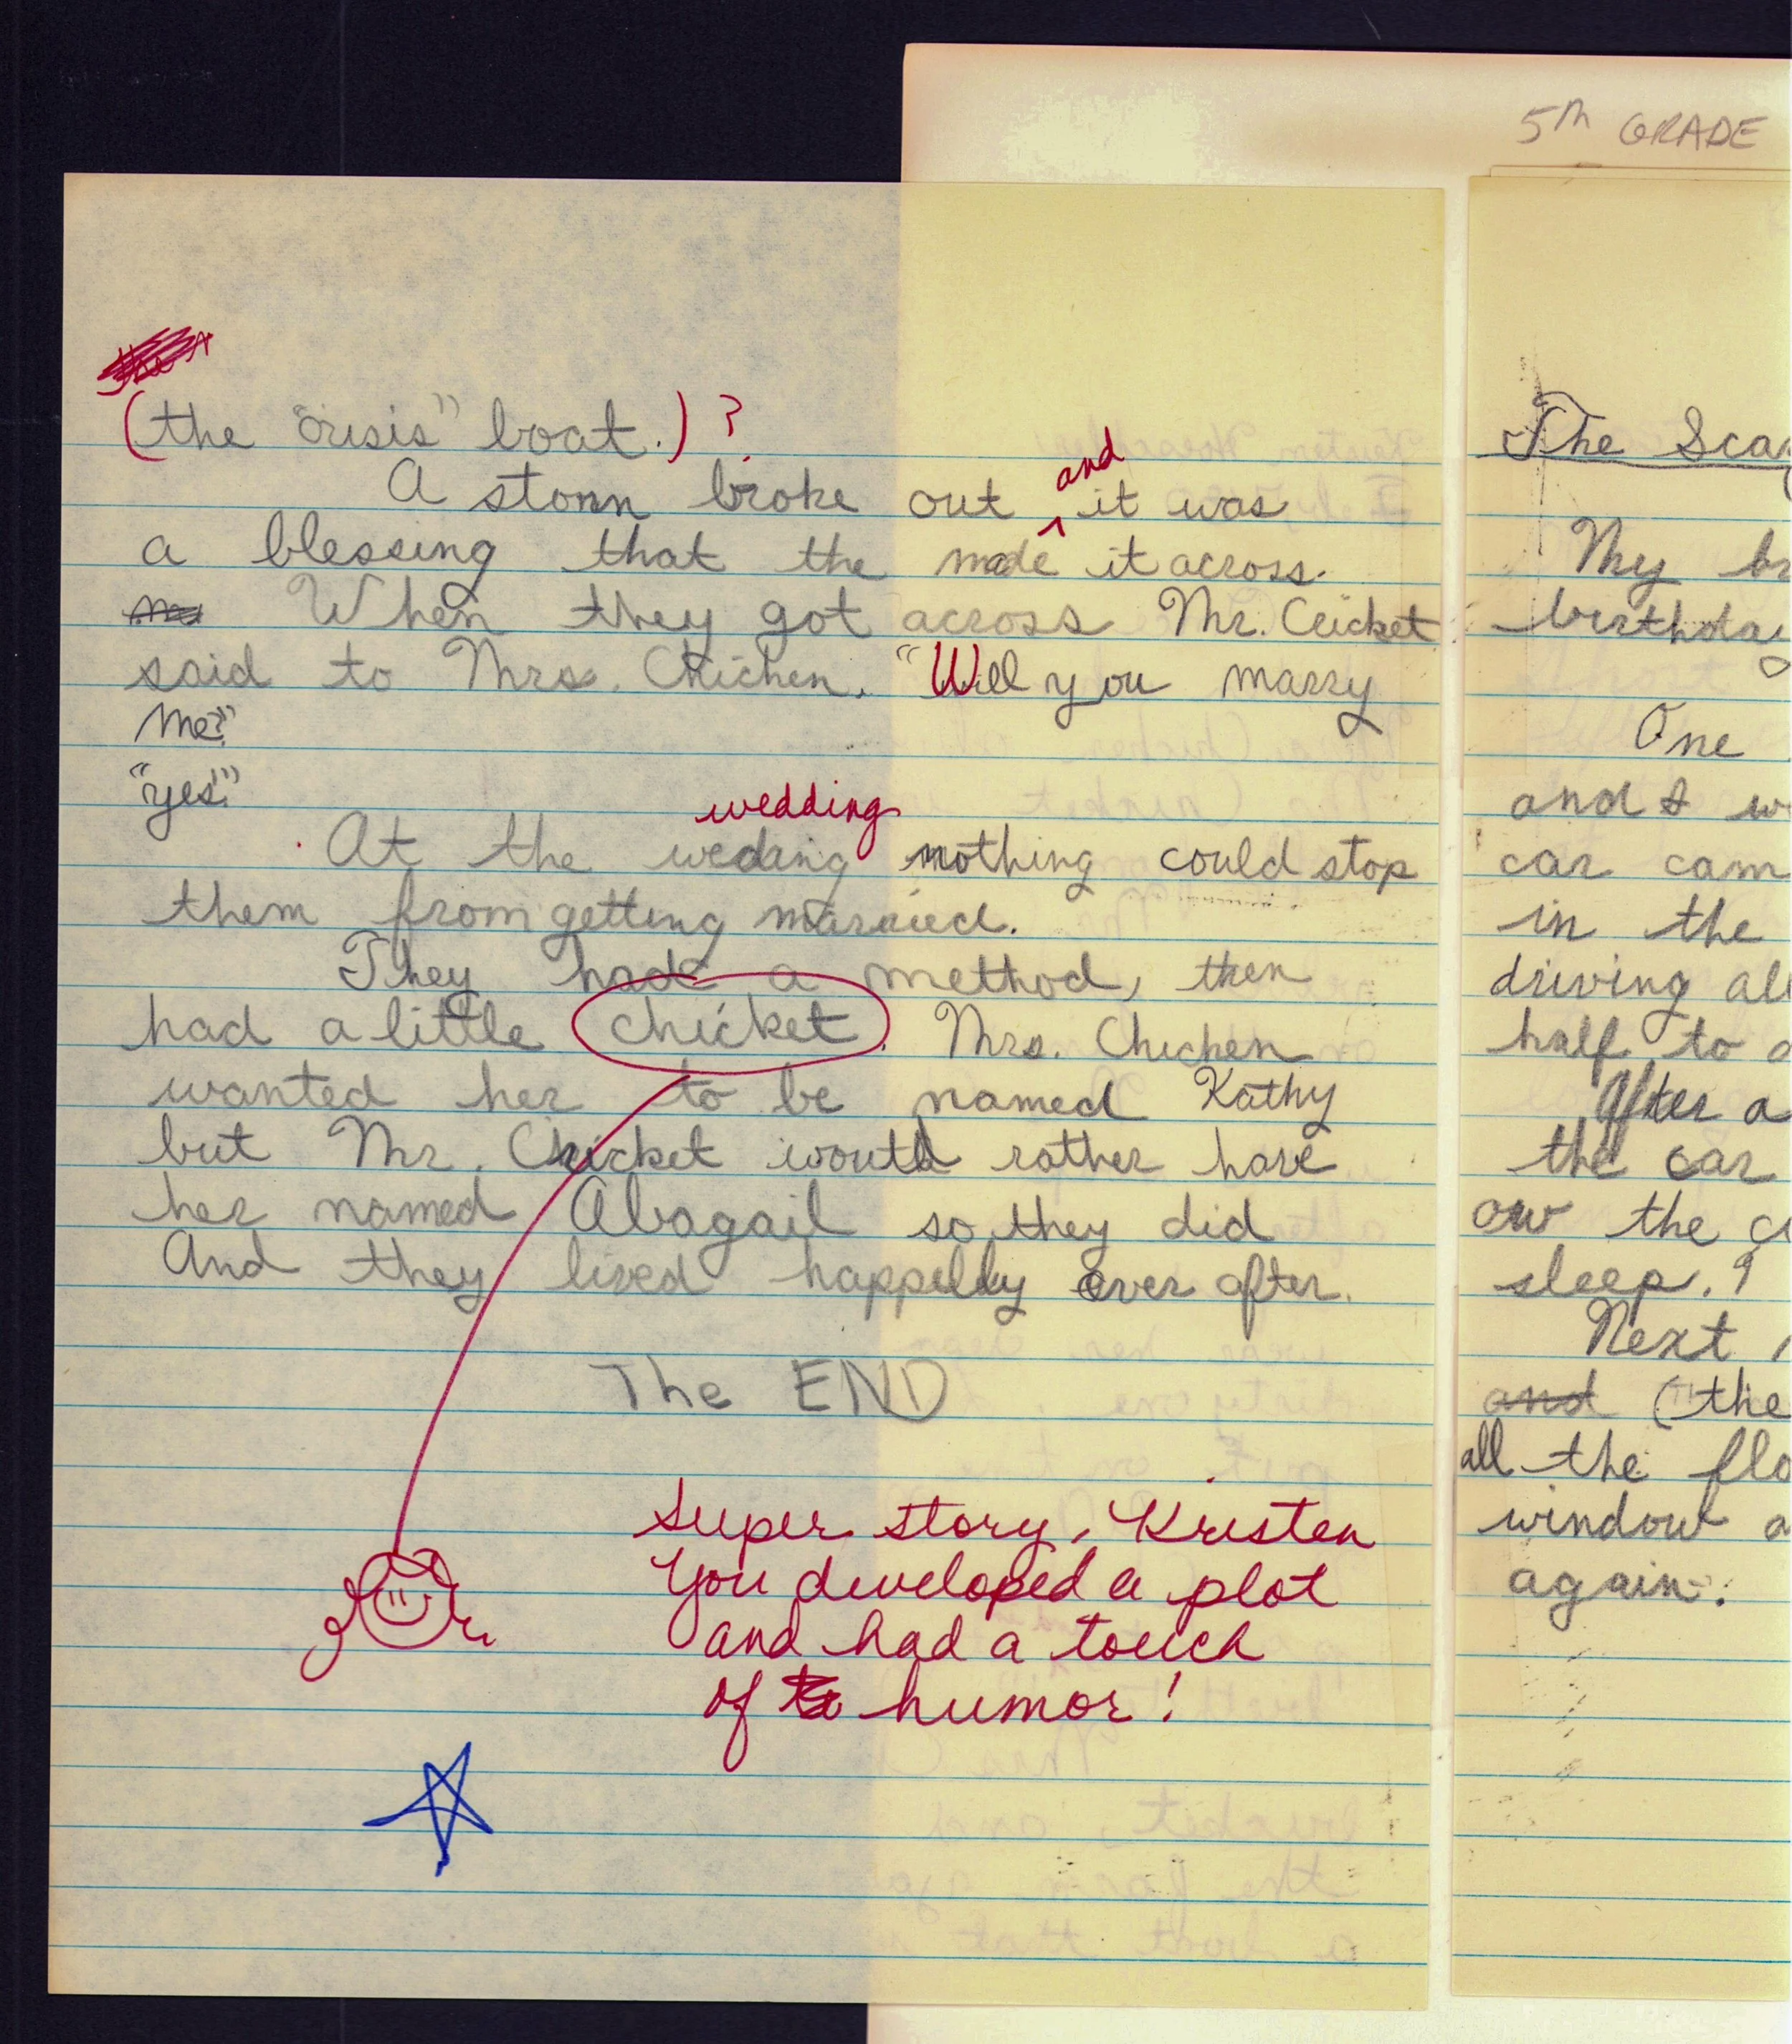 5th GRADE
(the "crisis" boat.) ?
A storm broke out and it was
a blessing that the made it across.
When they got across Mr. Cricket
said to Mrs. Chichen. "Will you marry
Me?"
"yes"
wedding
At the weding nothing could stop
them from getting married.
They had a method, then
had a little chicket. Mrs. Chichen
wanted her to be named Kathy
but Mr. Cricket would rather have
her named Abagail so they did
And they lived happelly ever after.
The END
Super story, Kristen
You developed a plot
and had a touch
of humor!
The
My
birthday
One
and I
car
in the
driving
half to
After a
the car
the
sleep.
Next
and (the
all the
window
again.